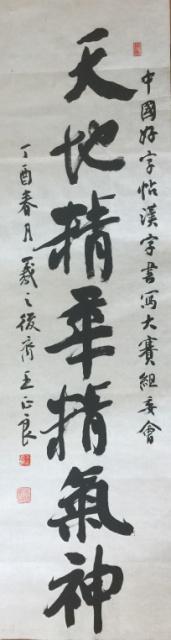 中國好字帖漢字書寫大賽組委會
天地精華精氣神
丁酉春月羲之後裔王正良